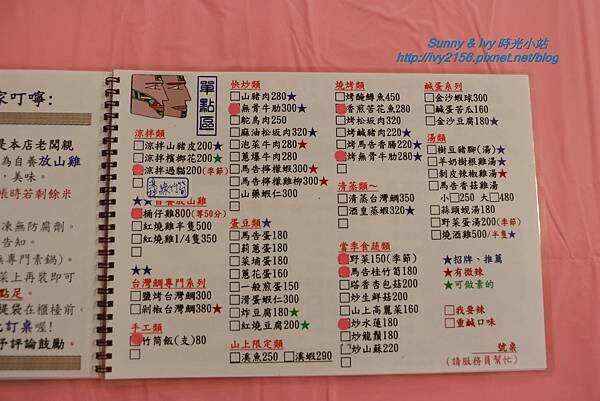 Sunny & Ivy 時光小站
http://ivy2156.pixnet.net/blog
家叮嚀:
是本店老闆親
為自養放山雞
,美味。
帳時若剩餘米
凍無防腐劑。
告知。
無專門素鍋)。
菜上再裝即可
點足。
提袋在櫃檯前。
北訂桌喔!
予評論鼓勵。
單點區
涼拌類
□涼拌山豬皮200★
涼拌檳榔花200★
涼拌過貓200(季節)
★★自養放山雞
桶仔雞800(等50分)
□紅燒雞半隻500
□紅燒雞1/4隻350
□
★★
台灣鯛專門系列
□鹽烤台灣鯛300
□剁椒台灣鯛380★
手工類
竹筒飯(支)80
□
快炒類
□山豬肉280★
無骨牛肋300★
□鴕鳥肉250
□麻油松坂肉320★
□泡菜牛肉280★
□蔥爆牛肉280
□馬告檸檬蝦300★
□馬告檸檬雞柳300★
□山藥蝦仁300
□
蛋豆類★
□馬告蛋180
□莿蔥蛋180
□菜埔蛋180
□蔥花蛋160
□一般煎蛋150
□滑蛋蝦仁300
□炸豆腐180★
□紅燒豆腐200★
□
山上限定類
□溪魚250 □溪蝦290
燒烤類
□烤醃鯙魚450
香煎苦花魚280
□烤松坂肉320
□烤鹹豬肉220★
□烤馬告香腸220★
烤無骨牛肋380★
□
清蒸類~
□清蒸台灣鯛350
□酒皇蒸蝦320★
□
當季食蔬類
野菜150(季節)
馬告桂竹筍180★
□塔香杏包菇200
□炒生鮮菇200
□山上高麗菜160
炒水蓮180
□炒龍鬚180
□炒山蘇220
鹹蛋系列
□金沙蝦球300
□鹹蛋苦瓜160
□金沙豆腐180★
□
湯類
□樹豆豬腳(湯)★
□羊奶樹根雞湯★
□剝皮辣椒雞湯★
□馬告香菇雞湯
小□250 大□480
□蒜頭蜆湯180
□野菜蛋湯200(季節)
□燒酒雞500/半隻★
★招牌、推薦
★有微辣
★可做素的
□我要辣
□重鹹口味
號桌
(請服務員幫忙)